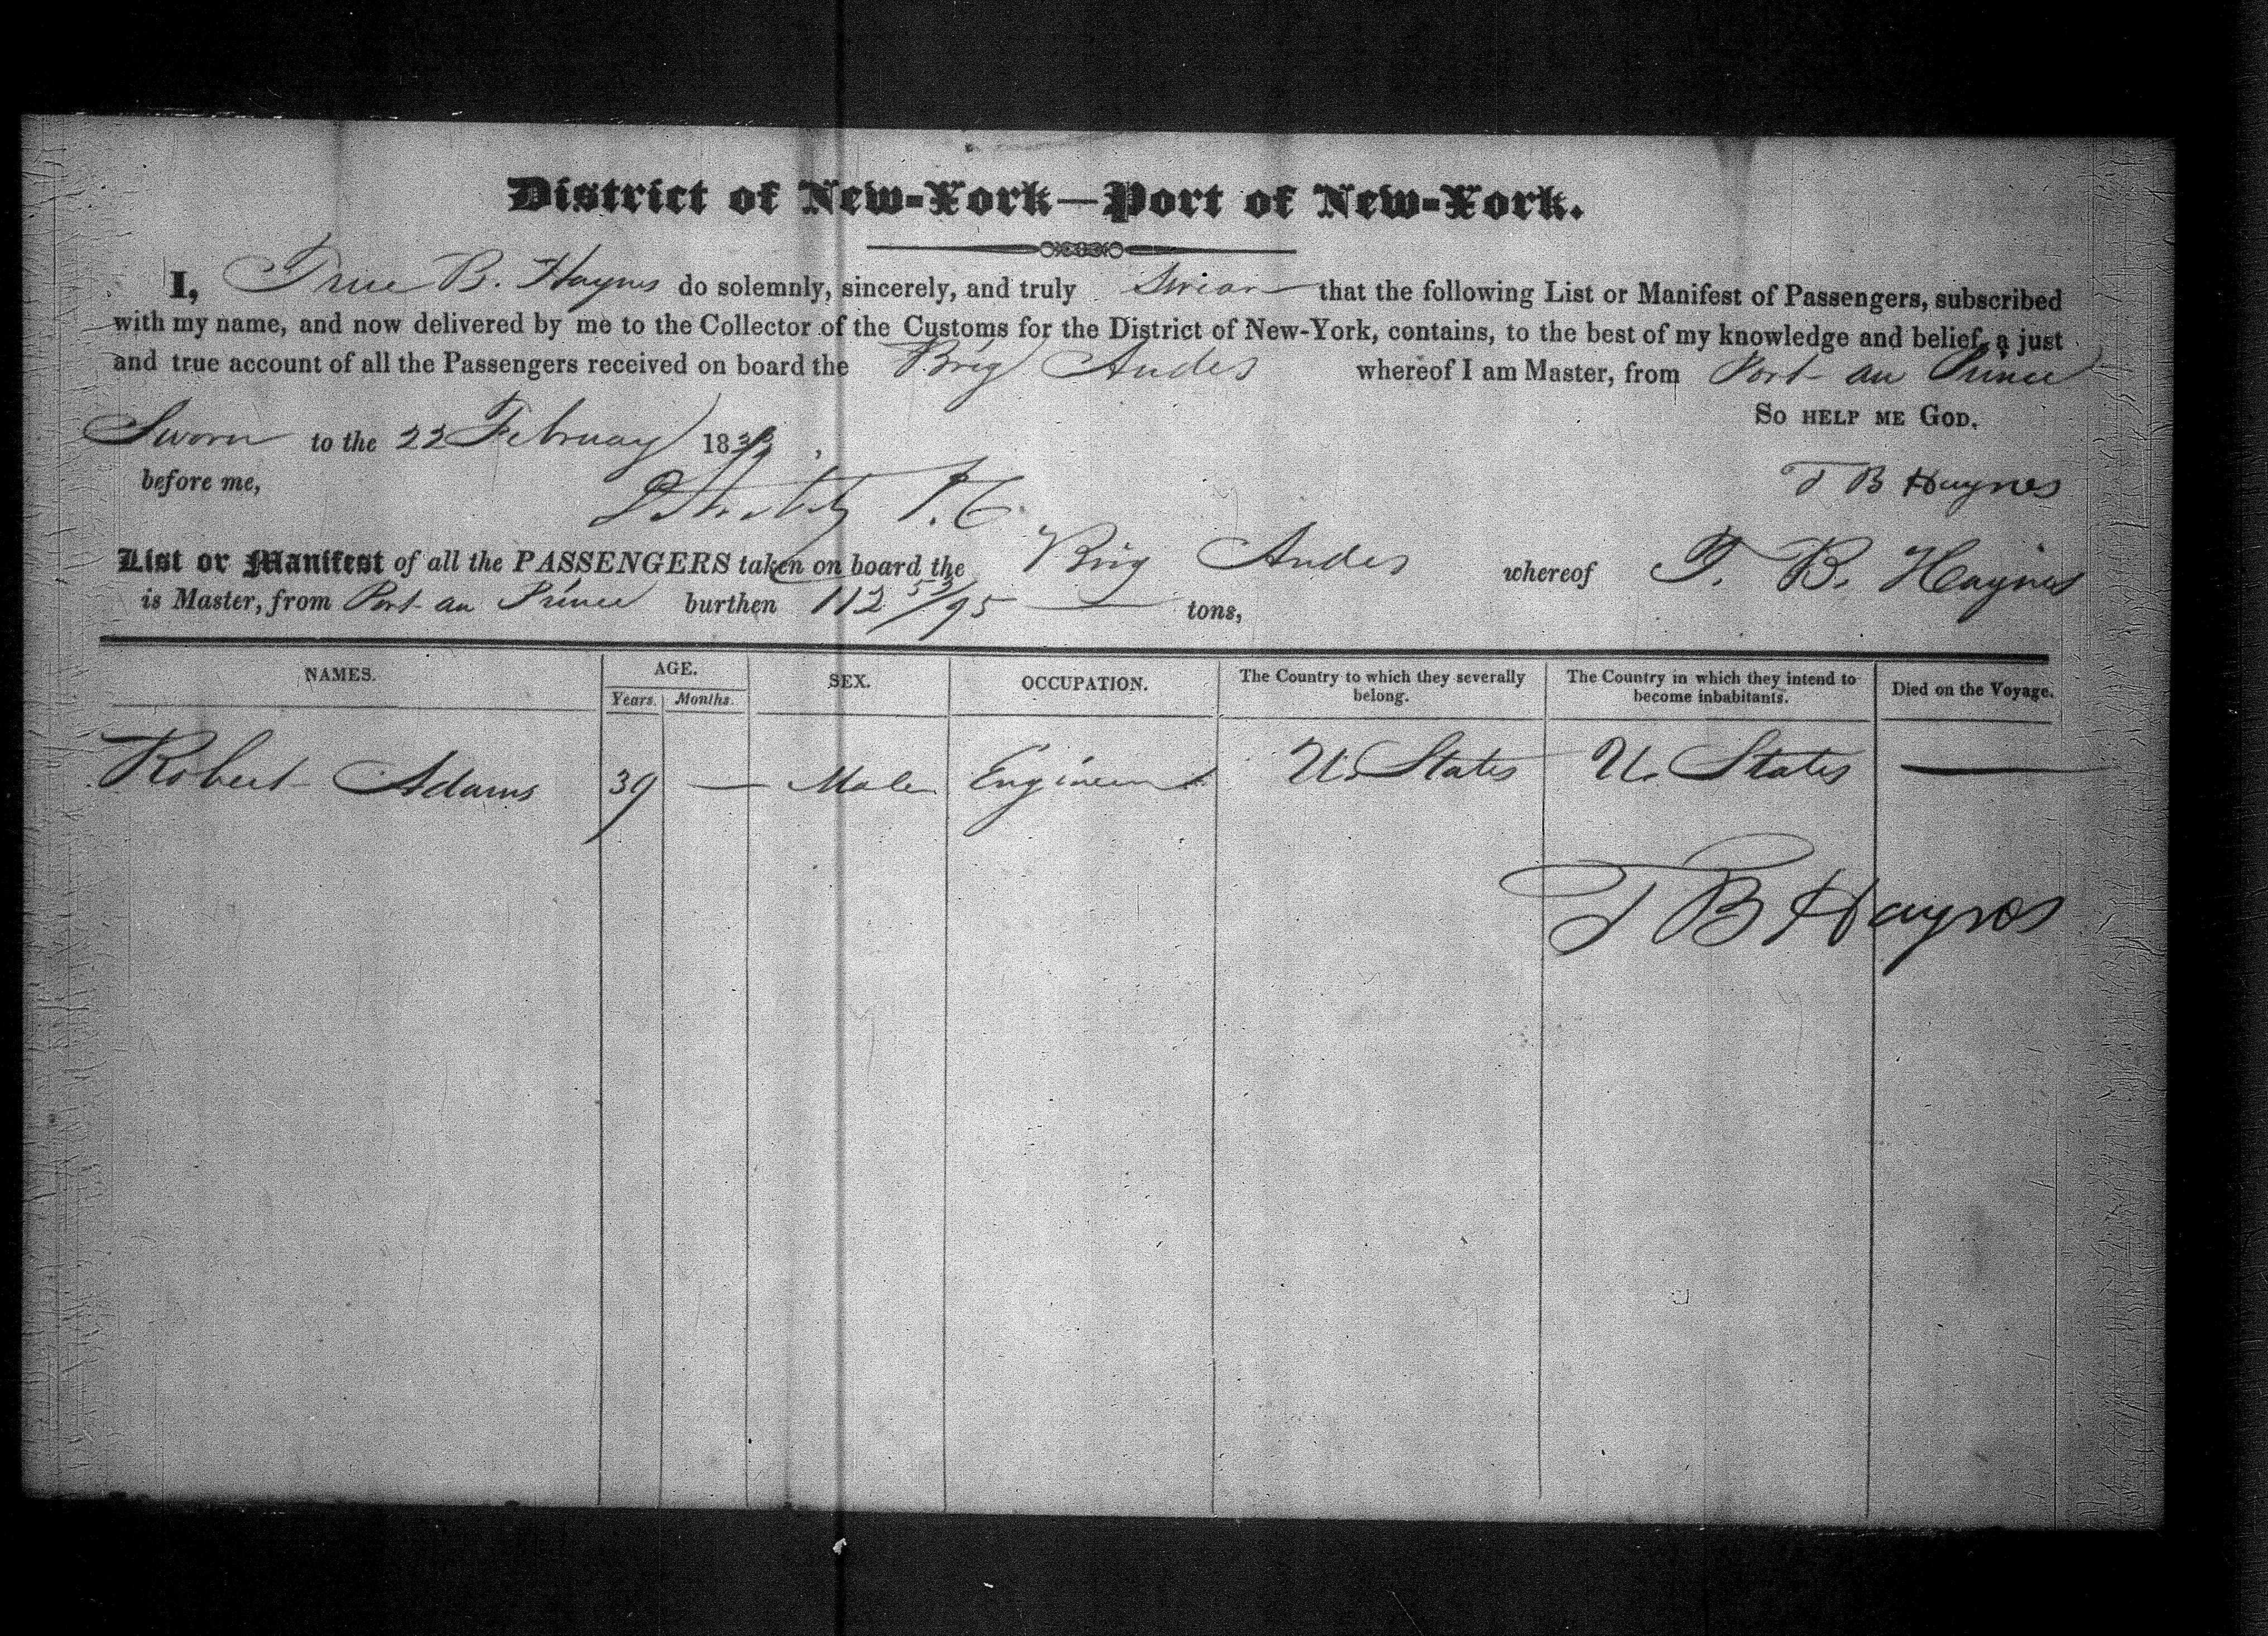 District of New-York—Port of New-York.
I, True B. Haynes do solemnly, sincerely, and truly Swear that the following List or Manifest of Passengers, subscribed
with my name, and now delivered by me to the Collector of the Customs for the District of New-York, contains, to the best of my knowledge and belief, a just
and true account of all the Passengers received on board the Brig Andes whereof I am Master, from Port au Prince
So HELP ME GOD.
Sworn to the 22 February 183
before me,
T B Haynes
List or Manifest of all the PASSENGERS taken on board the Brig Andes whereof T. B. Haynes
is Master, from Port au Prince burthen 112 53/95 tons,
NAMES. AGE. SEX. OCCUPATION. The Country to which they severally belong. The Country in which they intend to become inhabitants. Died on the Voyage.
Years. Months.
Robert Adams 39 — Male Engineer U. States U. States —
T B Haynes